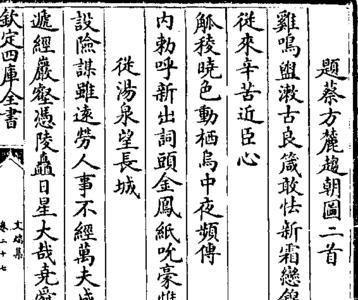 題蔡方麓趨朝圖二首
雞鳴盥漱古良箴敢怯新霜戀錦
從來辛苦近臣心
觚稜曉色動栖烏中夜頻傳
内勅呼新出詞頭金鳳紙吮豪惟
從湯泉望長城
設險謀雖遠勞人事不經萬夫成
遞經巖壑憑陵矗日星大哉堯舜
欽定四庫全書
文端集
卷二十七